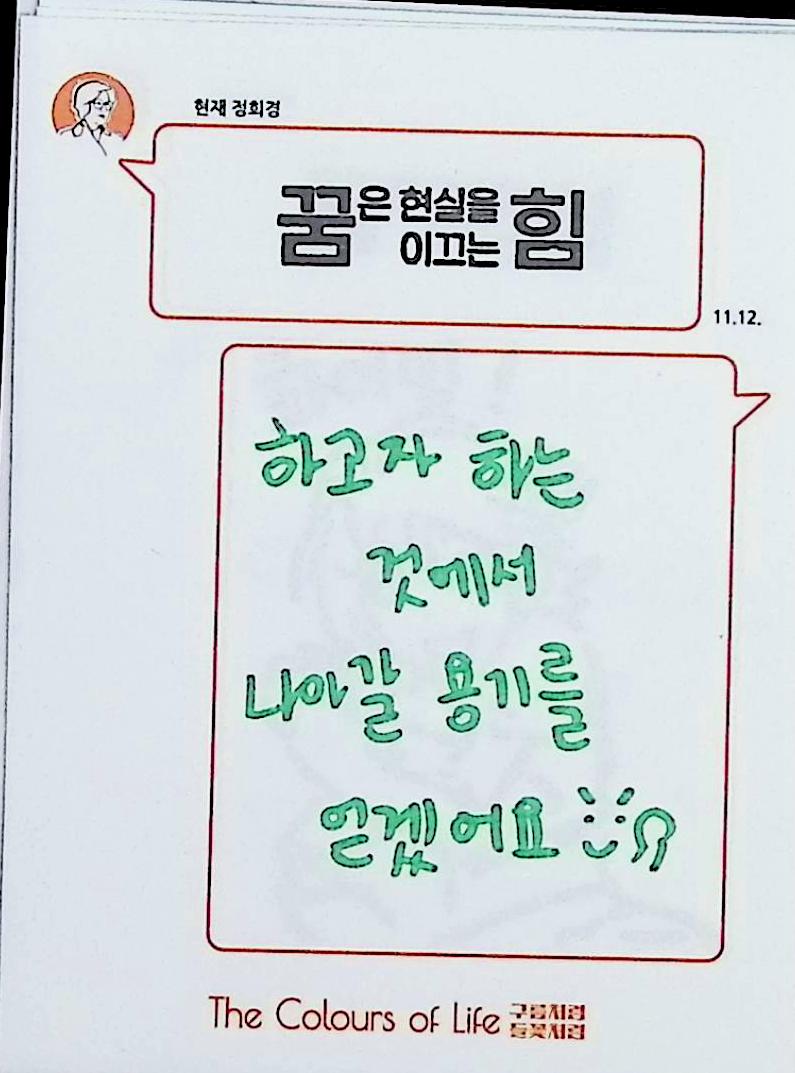 현재 정희경
꿈은 현실을
이끄는 힘
11.12.
하고자 하는
것에서
나아갈 용기를
얻겠어요
The Colours of Life 구름처럼
들꽃처럼